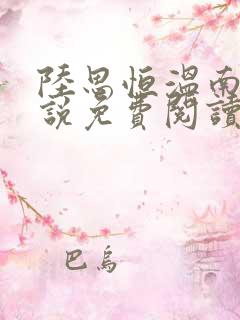 陸景恒溫南
說免費閱讀
巴烏